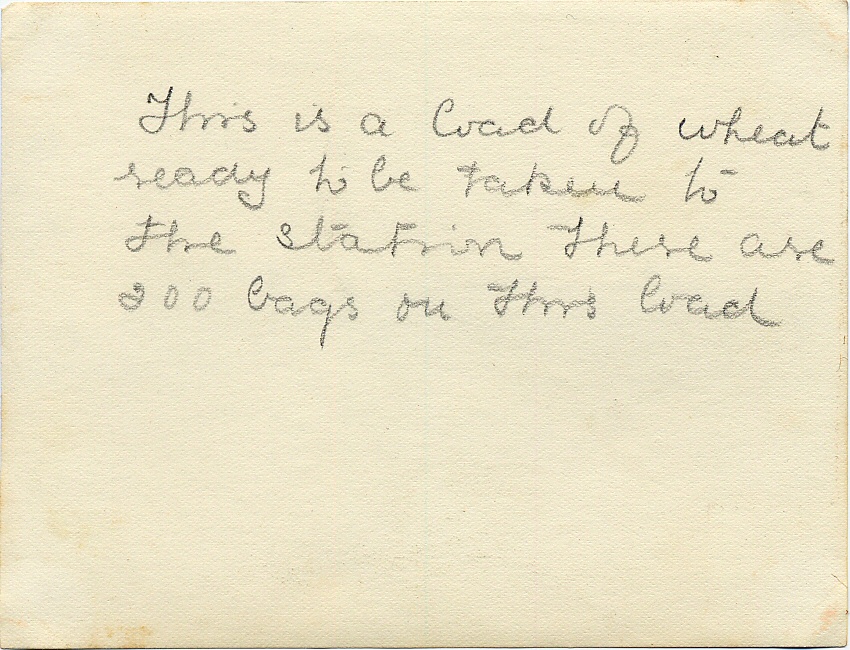 This is a load of wheat
ready to be taken to
the station There are
200 bags on This load